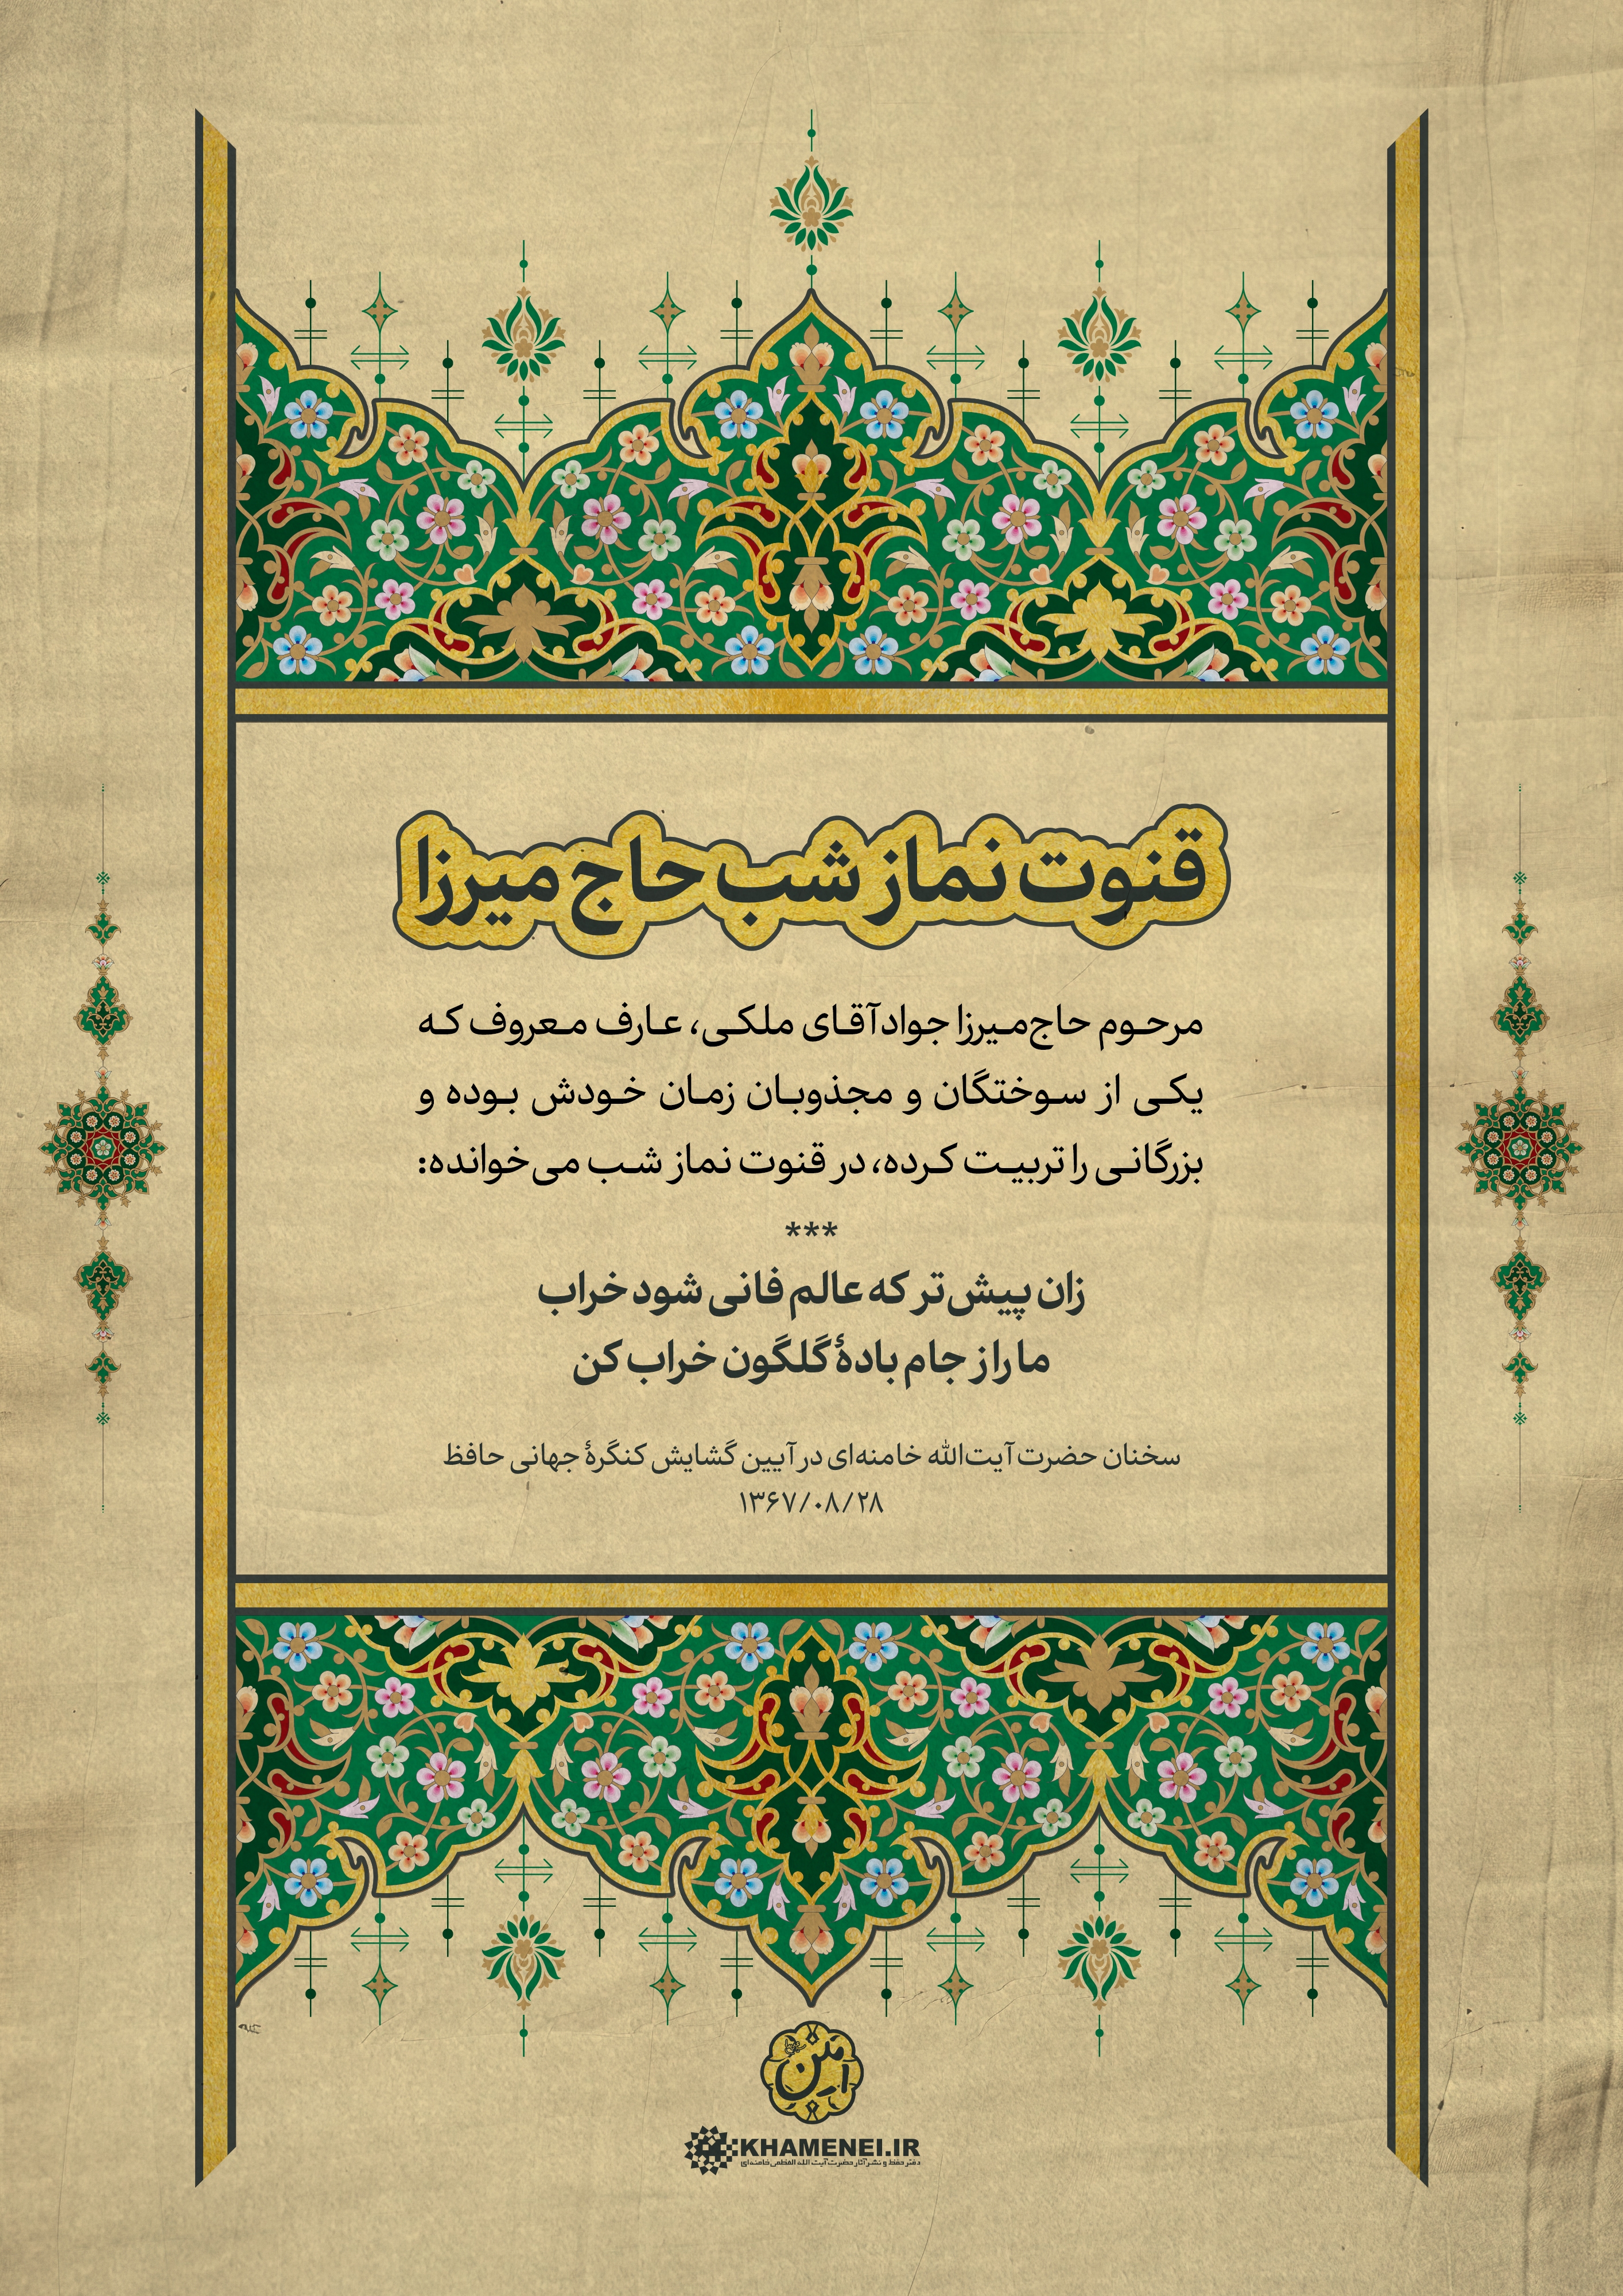 قنوت نماز شب حاج میرزا
مرحوم حاج‌میرزا جوادآقای ملکی، عارف معروف که
یکی از سوختگان و مجذوبان زمان خودش بوده و
بزرگانی را تربیت کرده، در قنوت نماز شب می‌خوانده:
***
زان پیش‌تر که عالم فانی شود خراب
ما را ز جام بادهٔ گلگون خراب کن
سخنان حضرت آیت‌الله خامنه‌ای در آیین گشایش کنگرهٔ جهانی حافظ
۱۳۶۷/۰۸/۲۸
KHAMENEI.IR
دفتر حفظ و نشر آثار حضرت آیت الله العظمی خامنه‌ای